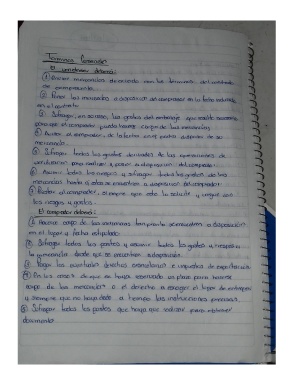 El vendedor deberá:
① Enviar mercancías de acuerdo con los términos del contrato
de compraventa.
② Poner las mercancías a disposición del comprador en la fecha
en el contrato
③ Sufragar, en su caso, los gastos del embalaje que resulte necesario
para que el comprador pueda hacerse cargo de las mercancías
④ Avisar al comprador, de la fecha en que podrá disponer de su
mercancía.
⑤ Sufragar todos los gastos derivados de las operaciones de
verificación para realizar la puesta a disposición del comprador
⑥ Asumir todos los riesgos y sufragar todos los gastos de las
mercancías hasta que se encuentren a disposición del comprador
⑦ Prestar al comprador, siempre que este lo solicite y corra con
los riesgos y gastos.
El comprador deberá:
① Hacerse cargo de las mercancías tan pronto se encuentren a disposición
en el lugar y fecha estipulado.
② Sufragar todos los gastos y asumir todos los riesgos
la mercancía desde que se encuentren a disposición.
③ Pagar los derechos e impuestos de exportación
④ En los casos de que se haya reservado un plazo para hacerse
cargo de las mercancías o el derecho a escoger el lugar de entrega
y siempre que no haya dado a tiempo las instrucciones precisas.
⑤ Sufragar todos los gastos que haya que realizar para obtener
documento.